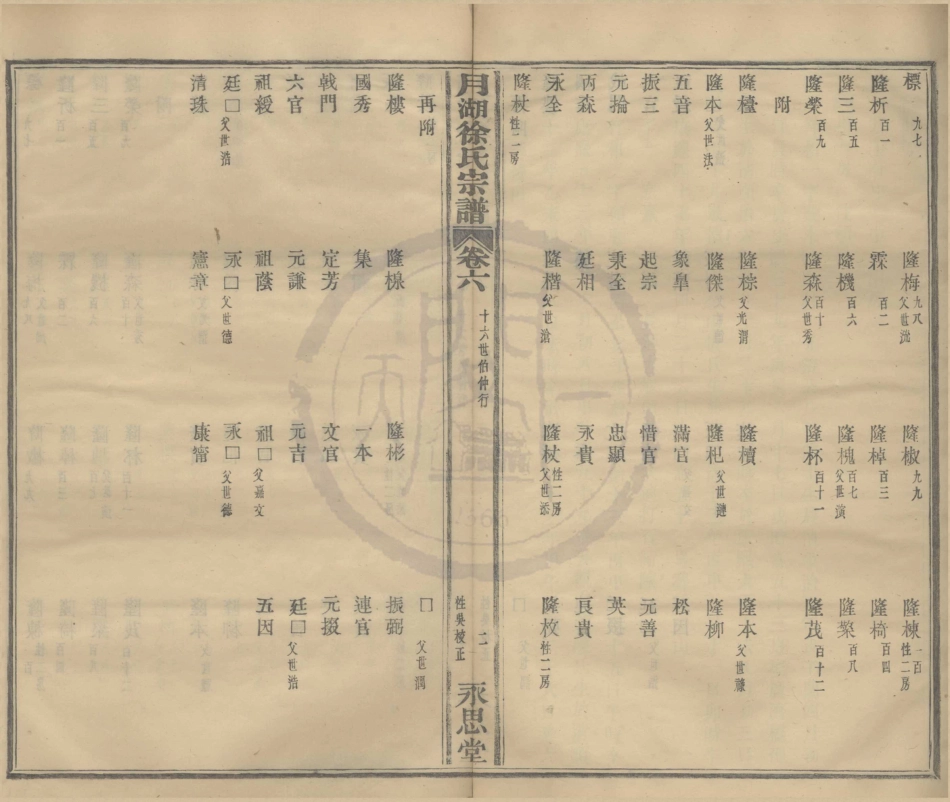 標 九七
隆梅 九八 父世㳘
隆椒 九九
隆棟 一百 性二房
隆析 百一
霖 百二
隆棹 百三
隆椅 百四
隆三 百五
隆機 百六
隆槐 百七 父世演
隆槩 百八
隆榮 百九
隆森 百十 父世秀
隆杯 百十一
隆茂 百十二
附
隆檯
隆棕 父光渭
隆櫝
隆本 父世濂
隆本 父世法
隆傑
隆杞 父世漣
隆柳
五音
象臯
滿官
松
振三
起宗
惜官
元善
元掄
秉全
忠顯
英
丙森
廷相
永貴
良貴
永全
隆楷 父世滄
隆杖 性二房 父世添
隆枚 性二房
隆杖 性二房
月湖徐氏宗譜 卷六 十六世伯仲行 二 性奐校正 永思堂
再附
口 父世潤
隆樓
隆棉
隆彬
振弼
國秀
集
一本
連官
戟門
定芳
文官
元掇
六官
元謙
元吉
廷口 父世浩
祖綬
祖蔭
祖口 父嘉文
五因
廷口 父世浩
永口 父世德
永口 父世德
清珠
憲章
康甯